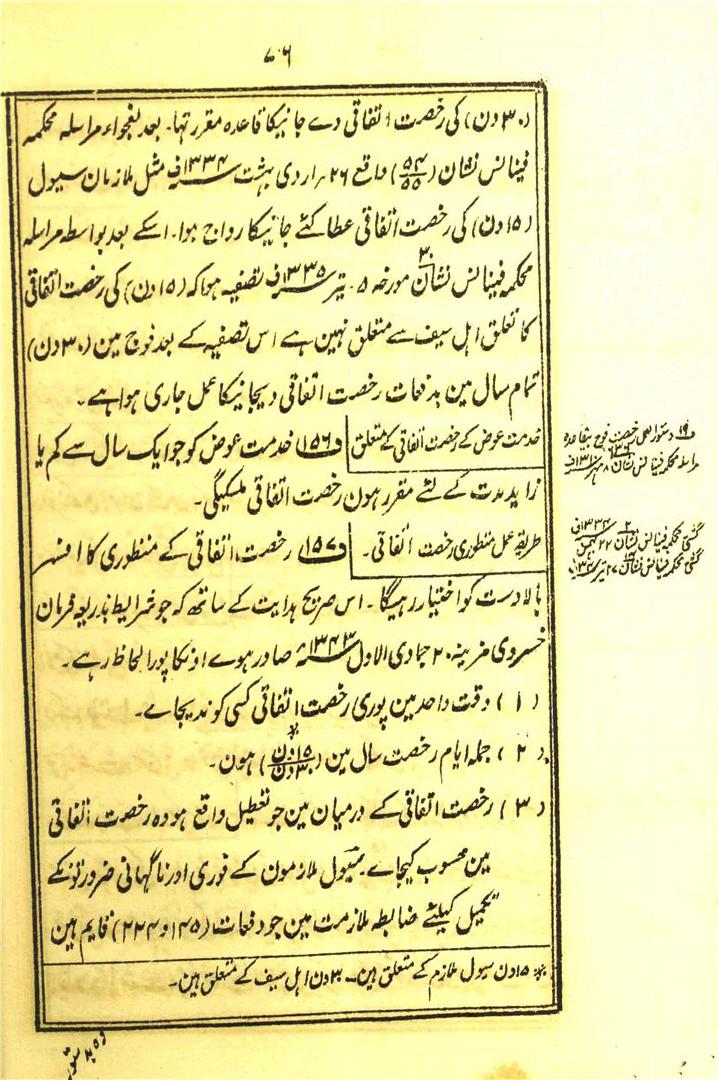 ۷۶
(۳۰ دن) کی رخصت اتفاقی دے جانیکا قاعدہ مقرر تھا۔ بعد بفجواء مراسلہ محکمہ
فینانس نشان (۵۴/۵۵) واقع ۲۶ اردی بہشت ۱۳۳۴ف مثل ملازمان سیول
(۱۵ دن) کی رخصت اتفاقی عطا کئے جانیکا رواج ہوا۔ اسکے بعد بواسطہ مراسلہ
محکمہ فینانس نشان ۳۰ مورخہ ۵۔ تیر ۱۳۳۵ف تصفیہ ہوا کہ (۱۵ دن) کی رخصت اتفاقی
کا تعلق اہل سیف سے متعلق نہین ہے اس تصفیہ کے بعد فوج مین (۳۰ دن)
تمام سال مین بدفعات رخصت اتفاقی دیجانیکا عمل جاری ہوا ہے۔
خدمت عوض کے رخصت اتفاقی کے متعلق
ف۱۵۶) خدمت عوض کو جو ایک سال سے کم یا
زاید مدت کے لئے مقرر ہون رخصت اتفاقی ملسکیگی۔
طریقہ عمل منظوری رخصت اتفاقی۔
ف۱۵۷) رخصت اتفاقی کے منظوری کا افسر
بالادست کو اختیار رہیگا۔ اس صریح ہدایت کے ساتھ کہ جو شرایط بذریعہ فرمان
خسروی مزینہ ۲۰ جمادی الاول ۱۳۴۳ھ صادر ہوے اونکا پورا لحاظ رہے۔
(۱) وقت واحد مین پوری رخصت اتفاقی کسی کو ندیجاے۔
(۲) جملہ ایام رخصت سال مین (۱۵ دن/۳۰ دن)* ہون۔
(۳) رخصت اتفاقی کے درمیان مین جو تعطیل واقع ہو وہ رخصت اتفاقی
مین محسوب کیجاے۔ سیول ملازمون کے فوری اور ناگہانی ضرورتونکے
تکمیل کیلئے ضابطہ ملازمت مین جو دفعات (۱۴۵ و ۲۲۴) قایم ہین
* ۱۵ دن سیول ملازم کے متعلق ہین۔ ۳۰ دن اہل سیف کے متعلق ہین۔
ف۱۹ دستور العمل رخصت فوج بیقاعدہ
مراسلہ محکمہ فینانس نشان ۶۳۶
گشتی محکمہ فینانس نشان ۲ ۲۲ بہمن
گشتی محکمہ فینانس نشان ۲۷ تیر